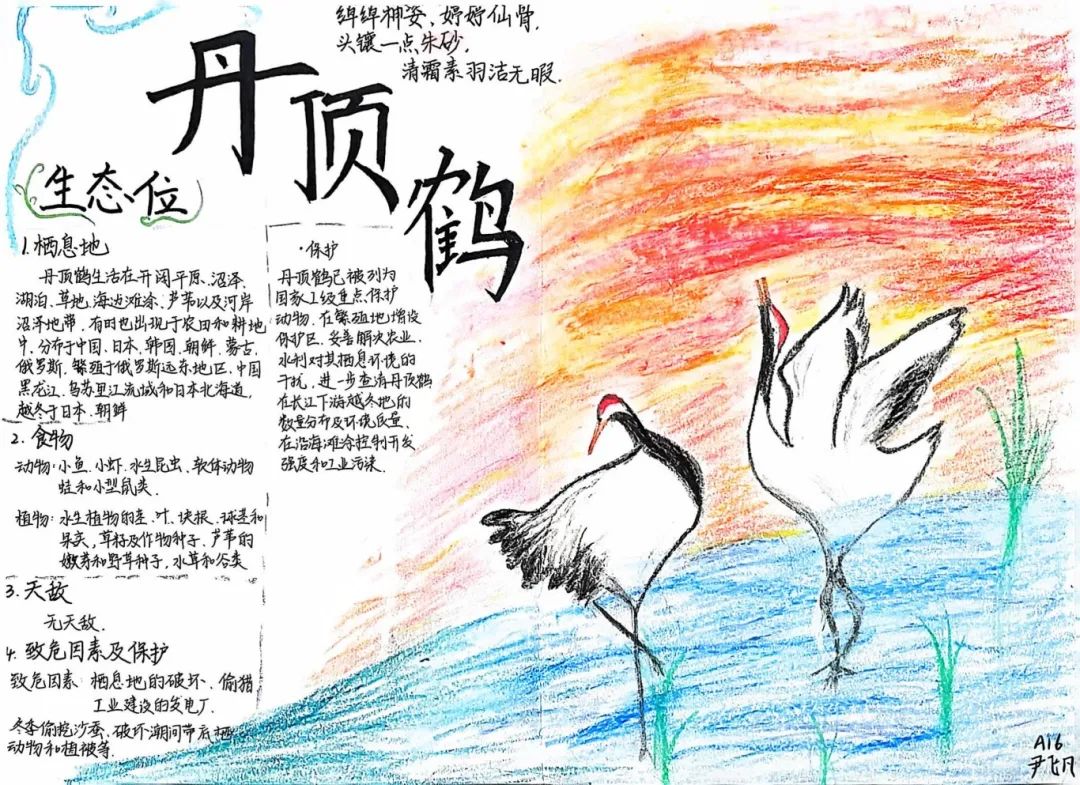 绰绰神姿,婷婷仙骨.
头镶一点朱砂,
清霜素羽洁无暇.
丹顶鹤
生态位
1.栖息地
丹顶鹤生活在开阔平原、沼泽、
湖泊、草地、海边滩涂、芦苇以及河岸
沼泽地带,有时也出现于农田和耕地
中,分布于中国、日本、韩国、朝鲜、蒙古、
俄罗斯,繁殖于俄罗斯远东地区,中国
黑龙江、乌苏里江流域和日本北海道,
越冬于日本、朝鲜
2.食物
动物:小鱼、小虾、水生昆虫、软体动物
蛙和小型鼠类.
植物:水生植物的茎、叶、块根、球茎和
果实,草籽及作物种子、芦苇的
嫩芽和野草种子,水草和谷类
3.天敌
无天敌.
4.致危因素及保护
致危因素 栖息地的破坏、偷猎
工业建设的发电厂.
冬季偷挖沙蚕,破坏潮间带底栖
动物和植被等.
·保护
丹顶鹤已被列为
国家I级重点保护
动物.在繁殖地增设
保护区、妥善解决农业、
水利对其栖息环境的
干扰,进一步查清丹顶鹤
在长江下游越冬地的
数量分布及环境质量、
在沿海滩涂控制开发
强度和工业污染.
A16
尹飞凡